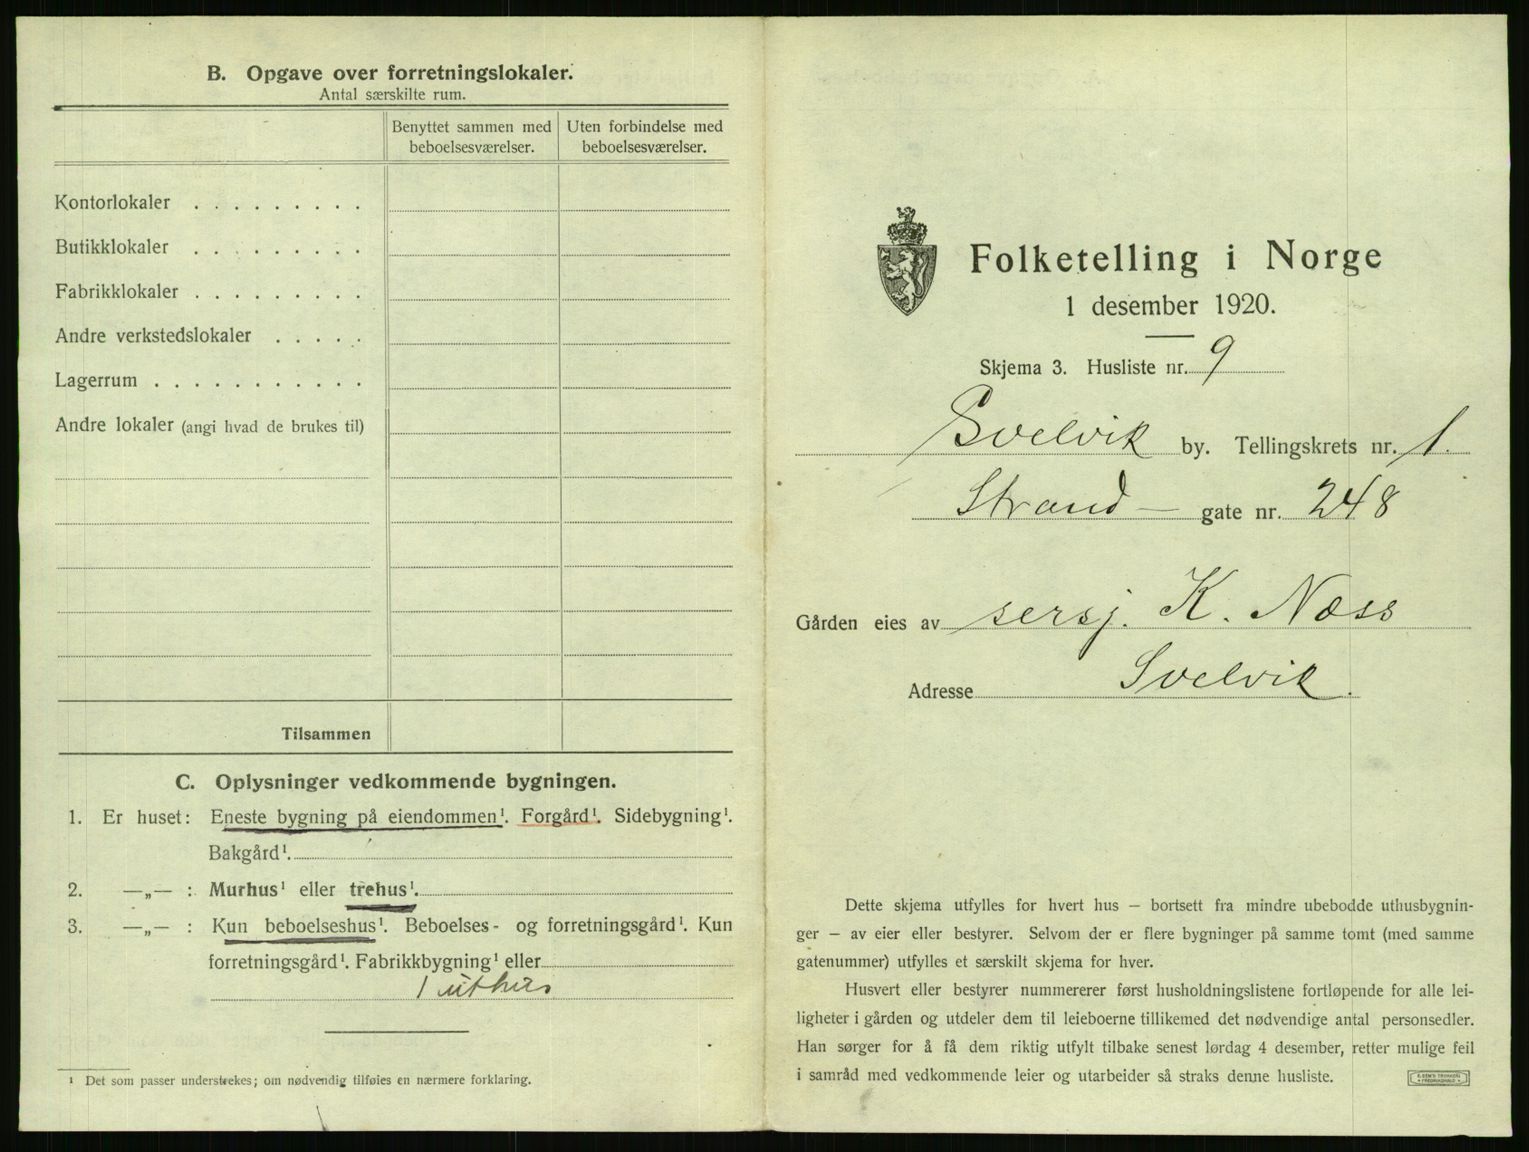 B. Opgave over forretningslokaler.
Antal særskilte rum.
Benyttet sammen med beboelsesværelser.
Uten forbindelse med beboelsesværelser.
Kontorlokaler . . . . . . . . .
Butikklokaler . . . . . . . . .
Fabrikklokaler . . . . . . . . .
Andre verkstedslokaler . . . . .
Lagerrum . . . . . . . . . . .
Andre lokaler (angi hvad de brukes til)
Tilsammen
C. Oplysninger vedkommende bygningen.
1. Er huset: Eneste bygning på eiendommen¹. Forgård¹. Sidebygning¹.
Bakgård¹.
2. —„— : Murhus¹ eller trehus¹.
3. —„— : Kun beboelseshus¹. Beboelses- og forretningsgård¹. Kun
forretningsgård¹. Fabrikkbygning¹ eller
1 uthus
¹ Det som passer understrekes; om nødvendig tilføies en nærmere forklaring.
Folketelling i Norge
1 desember 1920.
Skjema 3. Husliste nr. 9
Svelvik by. Tellingskrets nr. 1.
Strand — gate nr. 248
Gården eies av sersj. K. Næss
Adresse Svelvik.
Dette skjema utfylles for hvert hus – bortsett fra mindre ubebodde uthusbygnin-
ger – av eier eller bestyrer. Selvom der er flere bygninger på samme tomt (med samme
gatenummer) utfylles et særskilt skjema for hver.
Husvert eller bestyrer nummererer først husholdningslistene fortløpende for alle lei-
ligheter i gården og utdeler dem til leieboerne tillikemed det nødvendige antal personsedler.
Han sørger for å få dem riktig utfylt tilbake senest lørdag 4 desember, retter mulige feil
i samråd med vedkommende leier og utarbeider så straks denne husliste.